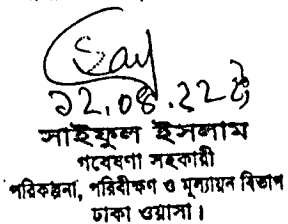 ১২.০৪.২২ইং
সাইফুল ইসলাম
গবেষণা সহকারী
পরিকল্পনা, পরিবীক্ষণ ও মূল্যায়ন বিভাগ
ঢাকা ওয়াসা।